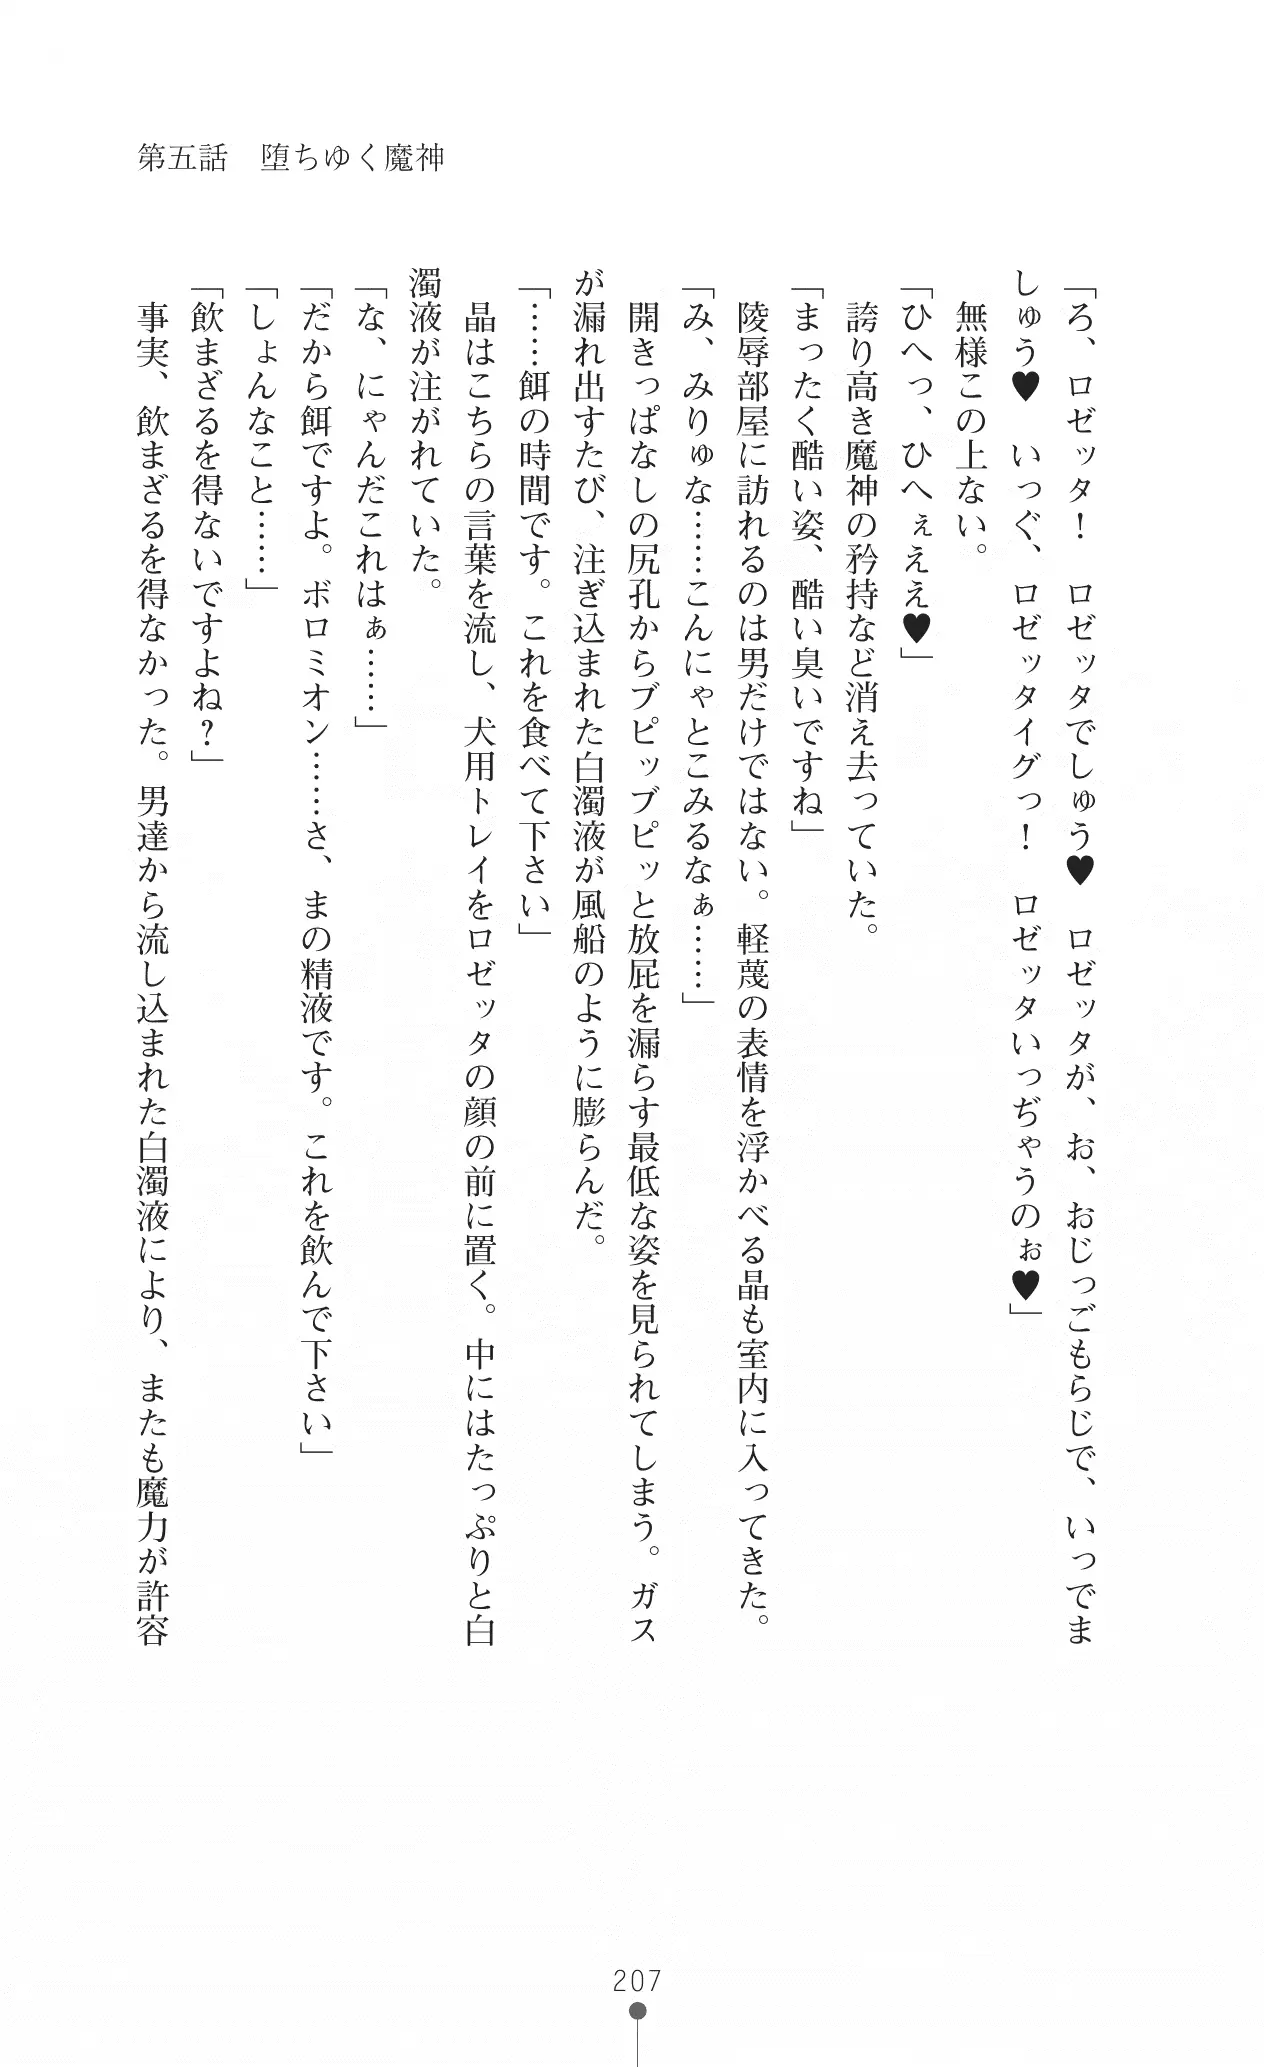 第五話　堕ちゆく魔神
「ろ、ロゼッタ！　ロゼッタでしゅう♥　ロゼッタが、お、おじっごもらじで、いっでま
しゅう♥　いっぐ、ロゼッタイグっ！　ロゼッタいっぢゃうのぉ♥」
　無様この上ない。
「ひへっ、ひへぇええ♥」
　誇り高き魔神の矜持など消え去っていた。
「まったく酷い姿、酷い臭いですね」
　陵辱部屋に訪れるのは男だけではない。軽蔑の表情を浮かべる晶も室内に入ってきた。
「み、みりゅな……こんにゃとこみるなぁ……」
　開きっぱなしの尻孔からブピッブピッと放屁を漏らす最低な姿を見られてしまう。ガス
が漏れ出すたび、注ぎ込まれた白濁液が風船のように膨らんだ。
「……餌の時間です。これを食べて下さい」
　晶はこちらの言葉を流し、犬用トレイをロゼッタの顔の前に置く。中にはたっぷりと白
濁液が注がれていた。
「な、にゃんだこれはぁ……」
「だから餌ですよ。ボロミオン……さ、まの精液です。これを飲んで下さい」
「しょんなこと……」
「飲まざるを得ないですよね？」
　事実、飲まざるを得なかった。男達から流し込まれた白濁液により、またも魔力が許容
207